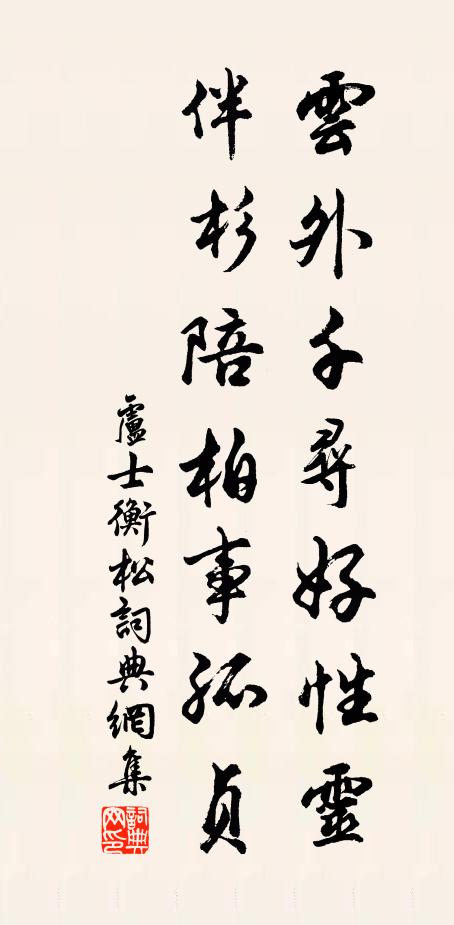 雲外千尋好性靈
伴杉陪柏事孤貞
盧士衡松詞典網集
詞典网印